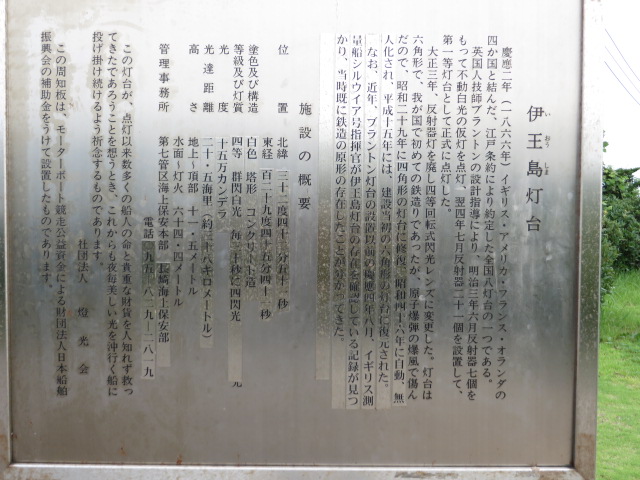 伊王島灯台
いおうしま
慶應二年(一八六六年)イギリス・アメリカ・フランス・オランダの
四か国と結んだ、江戸条約により約定した全国八灯台の一つである。
英国人技師ブラントンの設計指導により、明治三年六月反射器七個を
もって不動白光の仮灯を点灯、翌四年七月反射器二十一個を設置して、
第一等灯台として正式に点灯した。
大正三年、反射器灯を廃し四等回転式閃光レンズに変更した。灯台は
六角形で、我が国で初めての鉄造りであったが、原子爆弾の爆風で傷ん
だので、昭和二十九年に四角形の灯台に修復、昭和四十六年に自動、無
人化され、平成十五年には、建設当初の六角形の灯台に復元された。
なお、近年、ブラントン灯台の設置以前の慶應四年八月、イギリス測
量船シルウイア号指揮官が伊王島灯台の存在を確認している記録が見つ
かり、当時既に鉄造の原形の存在したことが分かってきた。
施設の概要
位置 北緯 三十二度四十二分五十一秒
東経 百二十九度四十五分四十三秒
塗色及び構造 白色 塔形 コンクリート造
等級及び灯質 四等 群閃白光 毎三十秒に四閃光
光度 十五万カンデラ
光達距離 二十・五海里(約三十八キロメートル)
高さ 地上〜頂部 十一・五メートル
水面〜灯火 六十四・四メートル
管理事務所 第七管区海上保安本部 長崎海上保安部
電話 九五-八二九-二八一九
この灯台が、点灯以来数多くの船人の命と貴重な財貨を人知れず救っ
てきたであろうことを想うとき、これからも夜毎美しい光を沖行く船に
投げ掛け続けるよう祈念するものであります。
社団法人 燈光会
この周知板は、モーターボート競走公益資金による財団法人日本船舶
振興会の補助金をうけて設置したものであります。